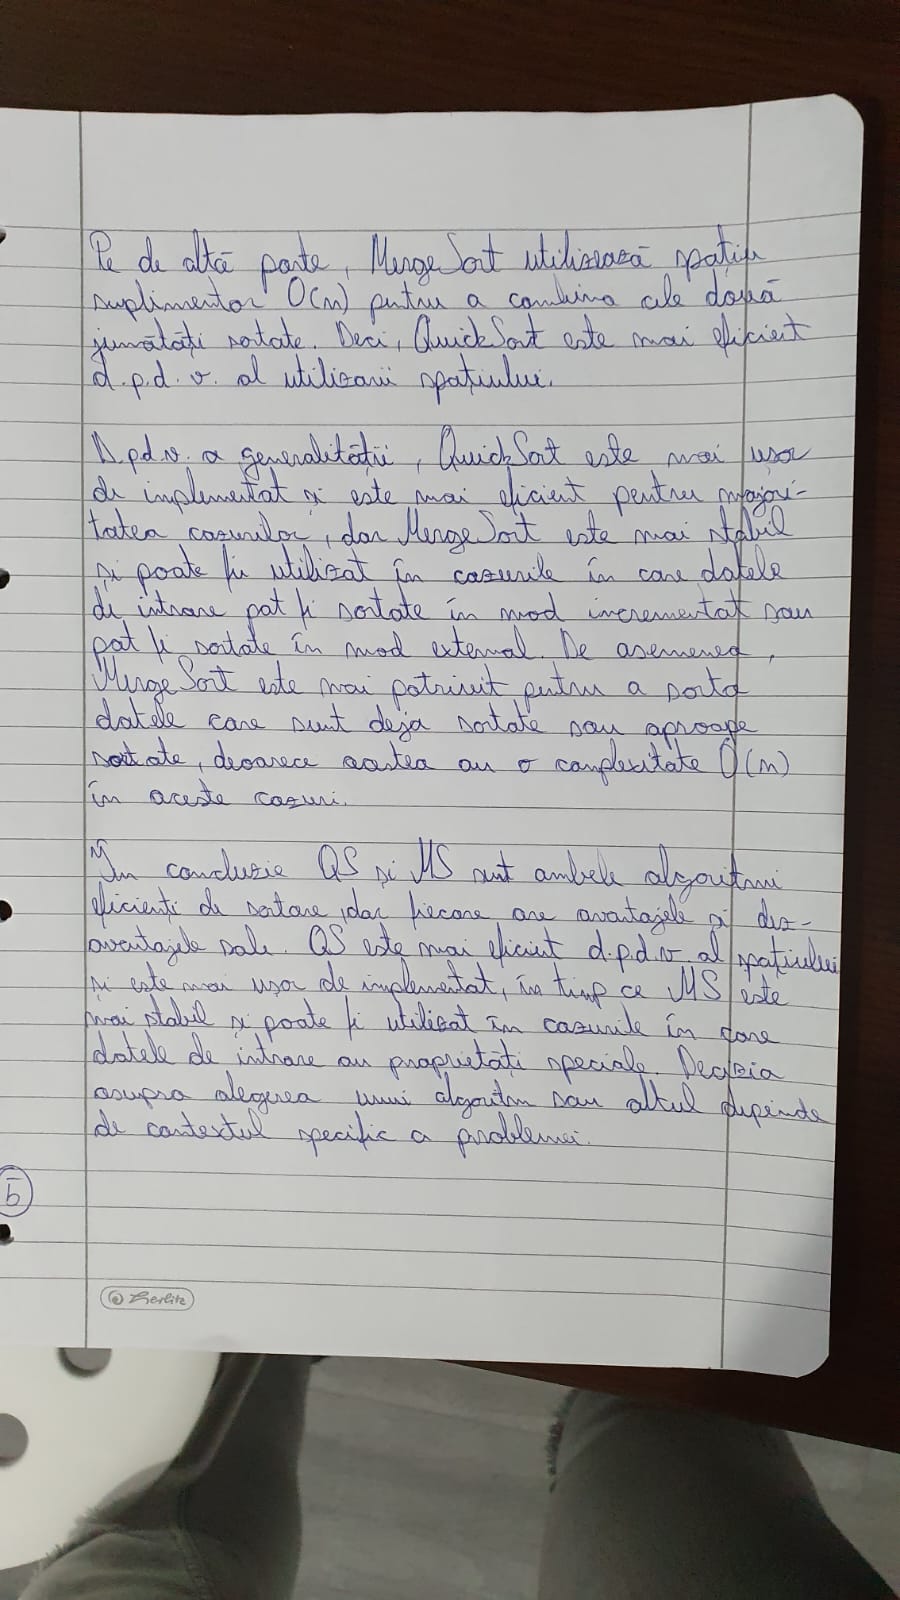 Pe de altă parte, MergeSort utilizează spațiu
suplimentar O(n) pentru a combina cele două
jumătăți sortate. Deci, QuickSort este mai eficient
d.p.d.v. al utilizării spațiului.
D.p.d.v. a generalității, QuickSort este mai ușor
de implementat și este mai eficient pentru majori-
tatea cazurilor, dar MergeSort este mai stabil
și poate fi utilizat în cazurile în care datele
de intrare pot fi sortate în mod incrementat sau
pot fi sortate în mod external. De asemenea,
MergeSort este mai potrivit pentru a sorta
datele care sunt deja sortate sau aproape
sortate, deoarece acestea au o complexitate O(n)
în aceste cazuri.
În concluzie QS și MS sunt ambele algoritmi
eficienți de sortare, dar fiecare are avantajele și dez-
avantajele sale. QS este mai eficient d.p.d.v. al spațiului
și este mai ușor de implementat, în timp ce MS este
mai stabil și poate fi utilizat în cazurile în care
datele de intrare au proprietăți speciale. Decizia
asupra alegerea unui algoritm sau altul depinde
de contextul specific a problemei.
5
herlitz